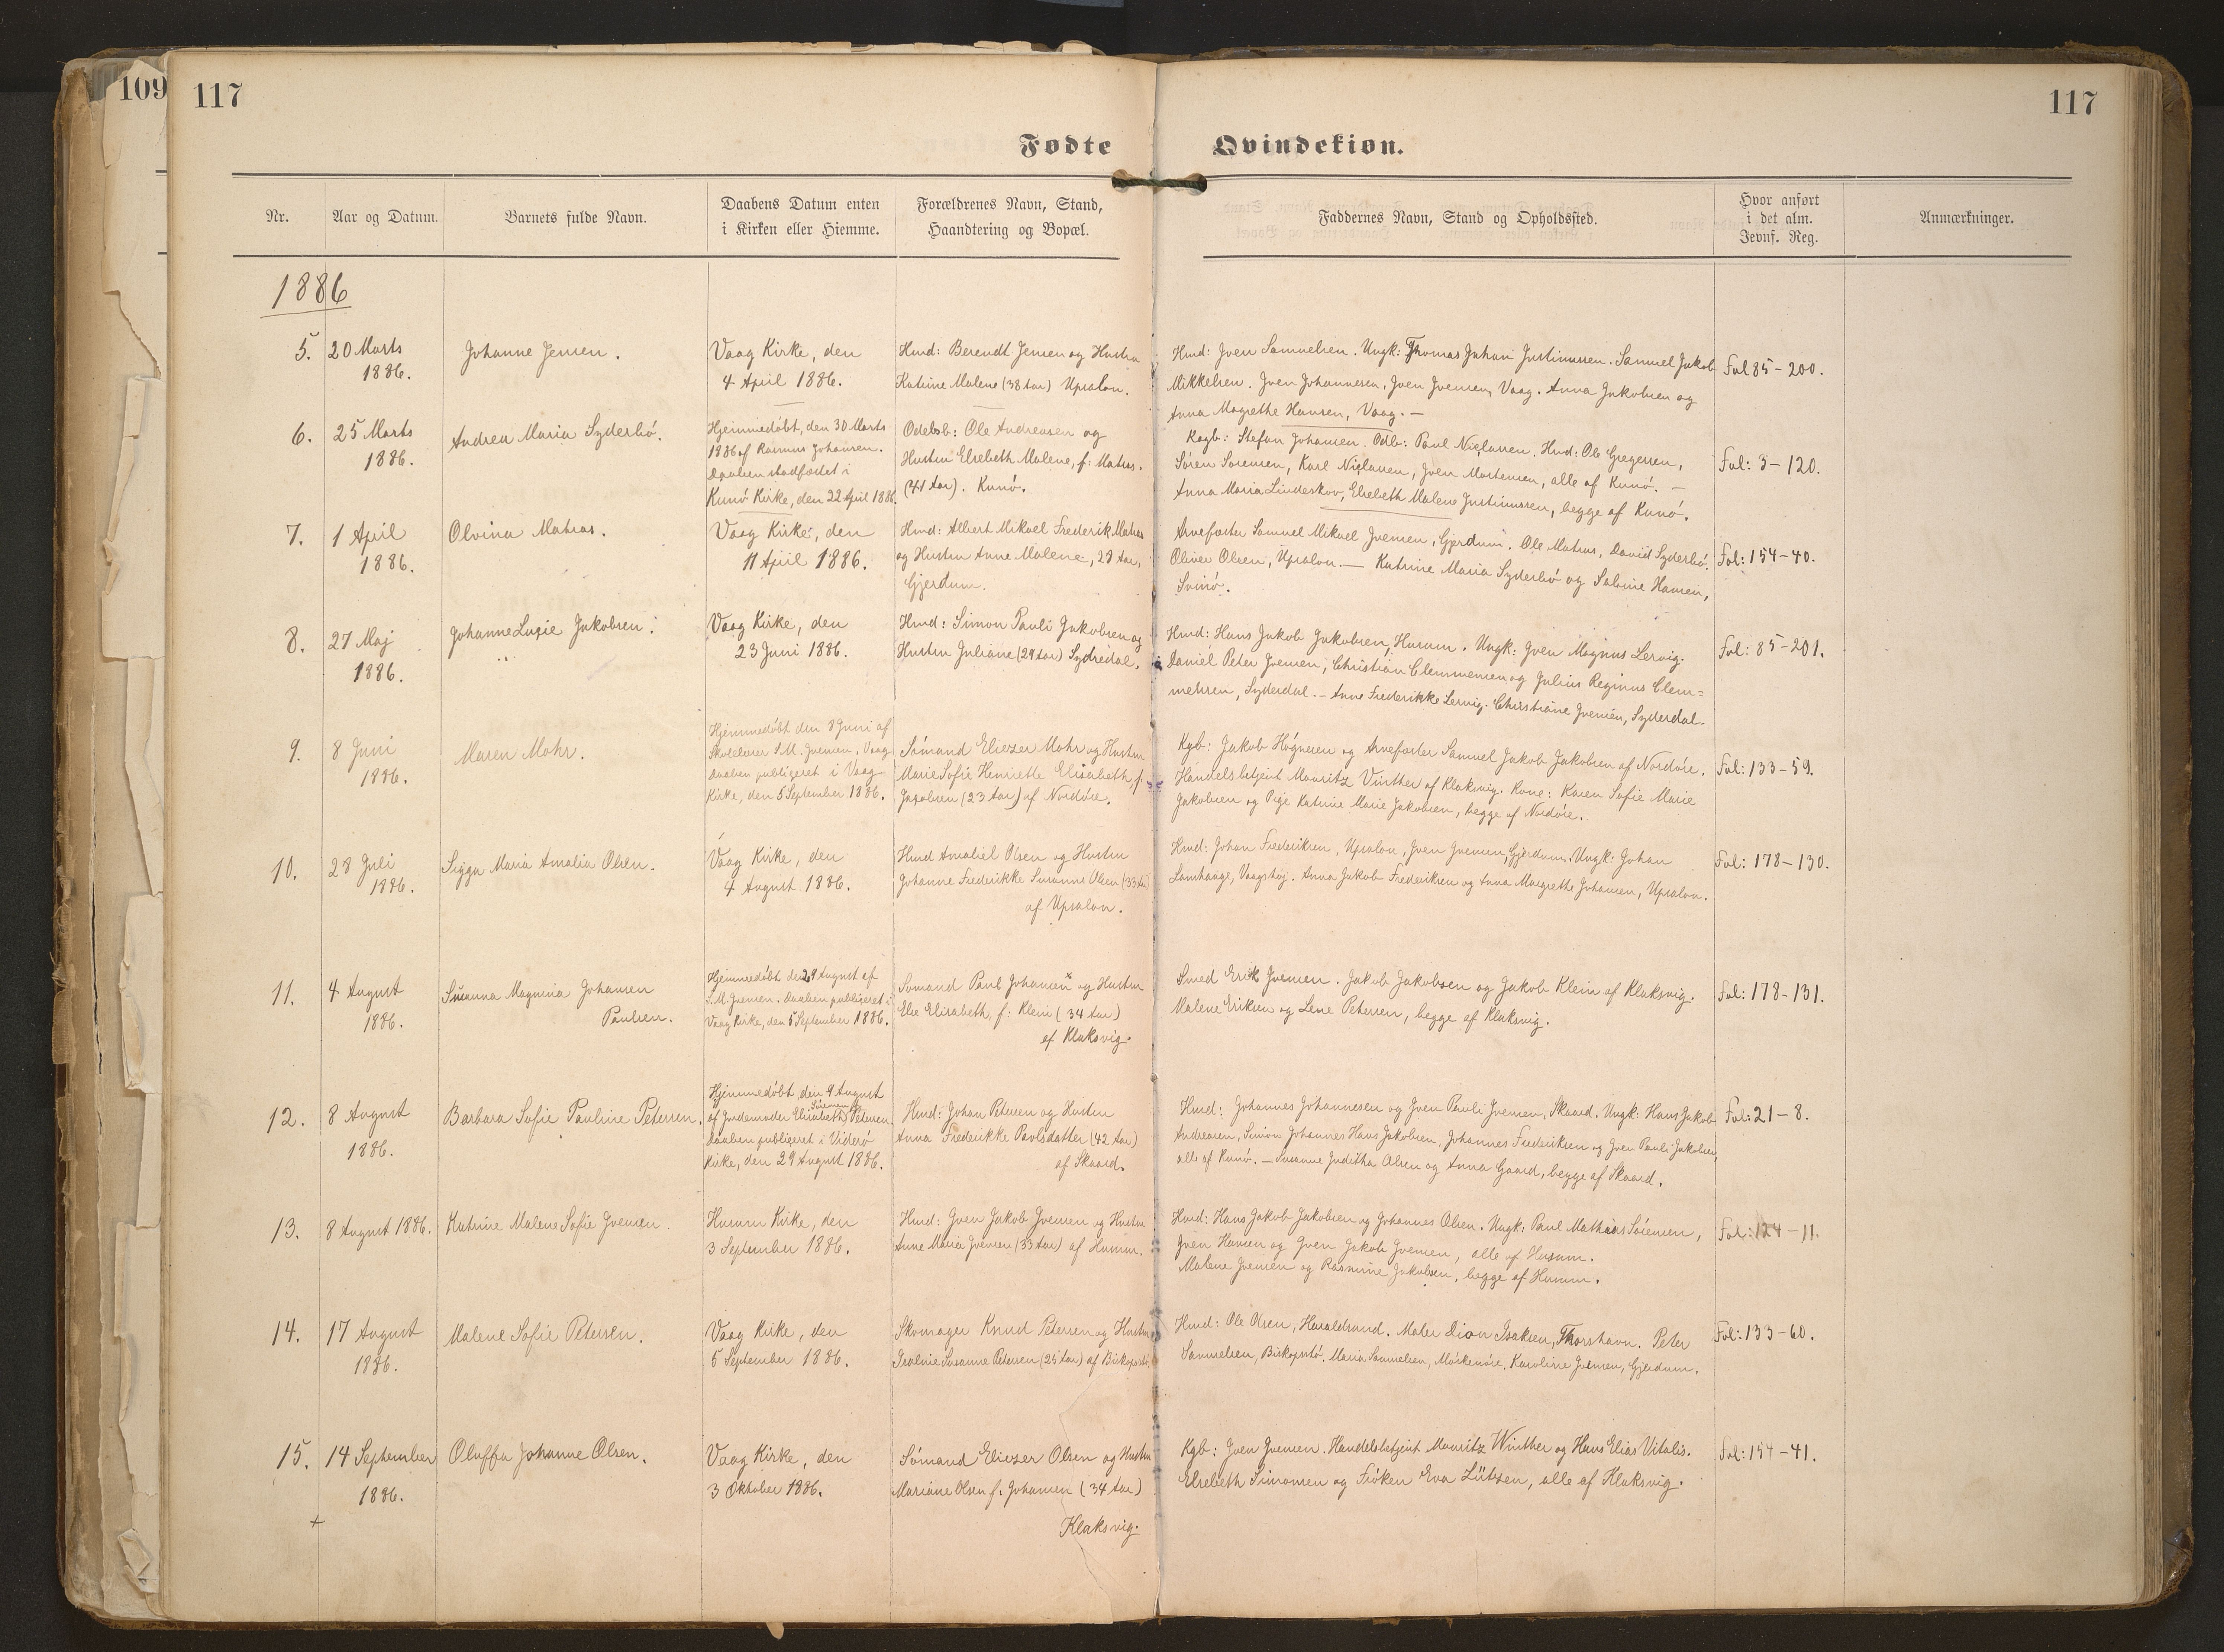 109
117
117
Fødte Qvindekiøn.
Nr.
Aar og Datum.
Barnets fulde Navn.
Daabens Datum enten
i Kirken eller Hiemme.
Forældrenes Navn, Stand,
Haandtering og Bopæl.
Faddernes Navn, Stand og Opholdssted.
Hvor anført
i det alm.
Jevnf. Reg.
Anmærkninger.
1886
5.
20 Marts
1886.
Johanne Jensen.
Vaag Kirke, den
4 April 1886.
Hmd: Berendt Jensen og Hustru
Katrine Malene (38 Aar) Upsalon.
Hmd: Joen Samuelsen. Ungk: Thomas Johan Justinussen. Samuel Jakob
Mikkelsen. Joen Johannesen, Joen Joensen, Vaag. Anna Jakobsen og
Anna Magrethe Hansen, Vaag. —
Fol 85 - 200.
6.
25 Marts
1886.
Andrea Maria Syderbó.
Hjemmedöbt, den 30 Marts
1886 af Rasmus Johansen.
Daaben stadfæstet i
Kunó Kirke, den 22 April 1886.
Odelsb: Ole Andreasen og
Hustru Elsebeth Malene, f: Matras.
(41 Aar). Kunó.
Kogb: Stefan Johansen. Odb: Paul Niclasen. Hmd: Ole Gregersen,
Sören Sorensen, Karl Niclasen, Joen Mortensen, alle af Kunó. —
Anna Maria Lindeskov, Elsebeth Malene Justinussen, begge af Kunó.
Fol: 3 - 120.
7.
1 April
1886.
Olvina Matras.
Vaag Kirke, den
11 April 1886.
Hmd: Albert Mikael Frederik Matras
og Hustru Anne Malene, 28 Aar,
Gjerdum.
Arvefæster Samuel Mikael Joensen, Gjerdum. Ole Matras, David Syderbó.
Oliver Olsen, Upsalon. — Katrine Maria Syderbó og Sabine Hansen,
Svinó.
Fol: 154-40.
8.
27 Maj
1886.
Johanne Lusie Jakobsen.
Vaag Kirke, den
23 Juni 1886.
Hmd: Simon Pauli Jakobsen og
Hustru Juliane (29 Aar) Sydredal.
Hmd: Hans Jakob Jakobsen, Husum. Ungk: Joen Magnus Lervig.
Daniel Peter Joensen, Christian Clemmensen og Julius Reginus Clem=
mensen, Syderdal. - Anne Frederikke Lervig. Christiane Joensen, Syderdal.
Fol: 85-201.
9.
8 Juni
1886.
Maren Mohr.
Hjemmedöbt den 8 Juni af
Skolelærer S.M. Joensen, Vaag
Daaben publiceret i Vaag
Kirke, den 5 September 1886.
Sómand Eliezer Mohr og Hustru
Marie Sofie Henriette Elisabeth, f.
Jacobsen (23 Aar) af Nordóre.
Kgb: Jakob Högnesen og Arvefæster Samuel Jakob Jakobsen af Nordóre.
Handelsbetjent Mouritz Vinther af Klaksvig. Kone: Karen Sofie Marie
Jakobsen og Pige Katrine Marie Jakobsen, begge af Nordóre.
Fol: 133-59.
10.
28 Juli
1886.
Sigga Maria Amalia Olsen.
Vaag Kirke, den
4 August 1886.
Hmd Amaliel Olsen og Hustru
Johanne Frederikke Susanne Olsen (33 Aar)
af Upsalon.
Hmd: Johan Frederiksen, Upsalon, Joen Joensen, Gjerdum. Ungk: Johan
Lamhauge, Vaagstøj. Anna Jakob Frederiksen og Anna Margrethe Johansen, Upsalon.
Fol: 178-130.
11.
4 August
1886.
Susanna Magnina Johansen
Paulsen.
Hjemmedöbt den 29 August af
S.M. Joensen. Daaben publiceret i
Vaag Kirke, den 5 September 1886.
Sómand Paul Johansen x og Hustru
Else Elisabeth, f: Klein (34 Aar)
af Klaksvig.
Smed Erik Joensen. Jakob Jakobsen og Jakob Klein af Klaksvig.
Malene Eriksen og Lene Petersen, begge af Klaksvig.
Fol: 178-131.
12.
8 August
1886.
Barbara Sofie Pauline Petersen.
Hjemmedöbt den 9 August
af Jordemoder Elisabeth Petersen
Daaben publiceret i Videró
Kirke, den 29 August 1886.
Hmd: Johan Petersen og Hustru
Anna Frederikke Povlsdatter (42 Aar)
af Skaard.
Hmd: Johannes Johannesen og Joen Pauli Joensen, Skaard. Ungk: Hans Jakob
Andreasen, Simon Johannes Hans Jakobsen, Johannes Frederiksen og Joen Pauli Jakobsen,
alle af Kunó. — Susanne Juditha Olsen og Anna Gaard, begge af Skaard.
Fol: 21 - 8.
13.
8 August 1886.
Katrine Malene Sofie Joensen.
Husum Kirke, den
3 September 1886.
Hmd: Joen Jakob Joensen og Hustru
Anne Maria Joensen (33 Aar) af Husum.
Hmd: Hans Jakob Jakobsen og Johannes Olsen. Ungk: Paul Mathias Sörensen,
Joen Hansen og Joen Jakob Joensen, alle af Husum.
Malene Joensen og Rasmine Jakobsen, begge af Husum.
Fol: 124-11.
14.
17 August
1886.
Malene Sofie Petersen.
Vaag Kirke, den
5 September 1886.
Skomager Knud Petersen og Hustru
Isalvie Susanne Petersen (25 Aar) af Biskopstó.
Hmd: Ole Olsen, Haraldsund. Maler Dion Isaksen, Thorshavn. Peter
Samuelsen, Biskopstó. Maria Samuelsen, Móskenóre. Karoline Joensen, Gjerdum.
Fol: 133-60.
15.
14 September
1886.
+
Oluffa Johanne Olsen.
Vaag Kirke, den
3 Oktober 1886.
Sómand Eliezer Olsen og Hustru
Mariane Olsen f: Johansen (34 Aar)
Klaksvig.
Kgb: Joen Joensen. Handelsbetjent Mouritz Winther og Hans Elias Vitalis.
Elsebeth Simonsen og Fröken Eva Lützen, alle af Klaksvig.
Fol: 154-41.